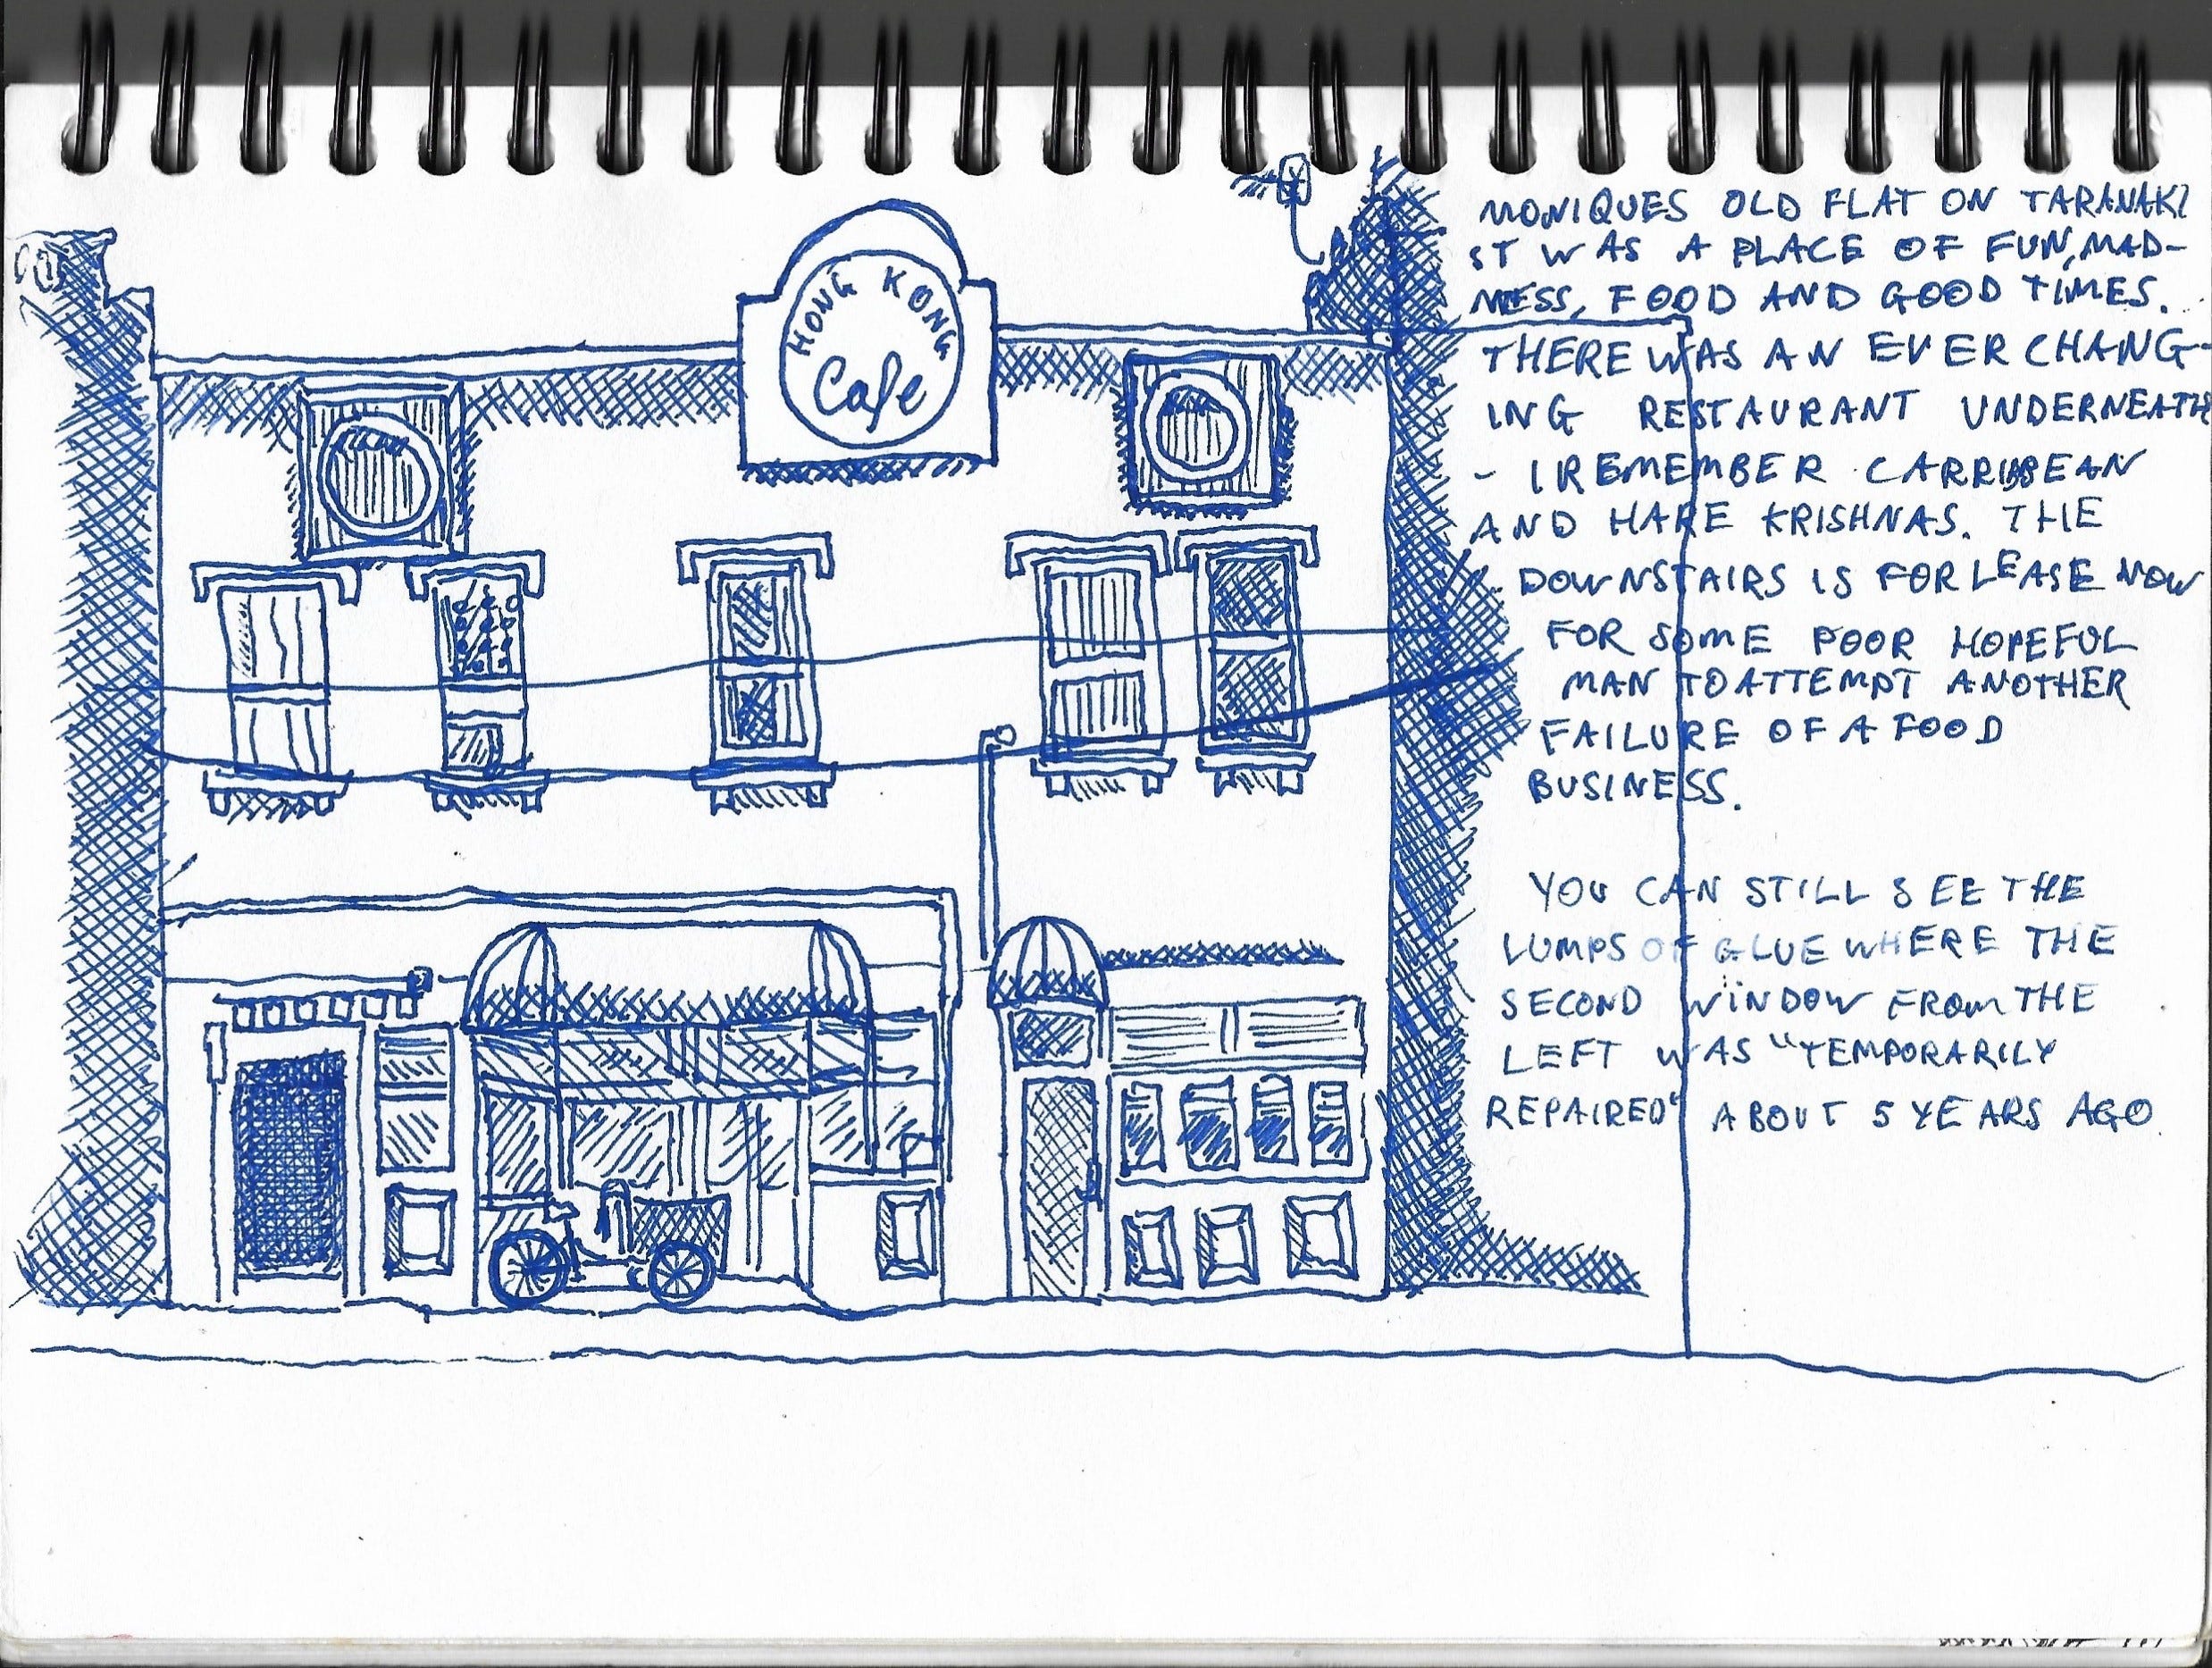 HONG KONG
Cafe
MONIQUES OLD FLAT ON TARANAKI
ST WAS A PLACE OF FUN, MAD-
NESS, FOOD AND GOOD TIMES.
THERE WAS AN EVER CHANG-
ING RESTAURANT UNDERNEATH
- I REMEMBER CARRIBBEAN
AND HARE KRISHNAS. THE
DOWNSTAIRS IS FOR LEASE NOW
FOR SOME POOR HOPEFUL
MAN TO ATTEMPT ANOTHER
FAILURE OF A FOOD
BUSINESS.
YOU CAN STILL SEE THE
LUMPS OF GLUE WHERE THE
SECOND WINDOW FROM THE
LEFT WAS "TEMPORARILY
REPAIRED" ABOUT 5 YEARS AGO.